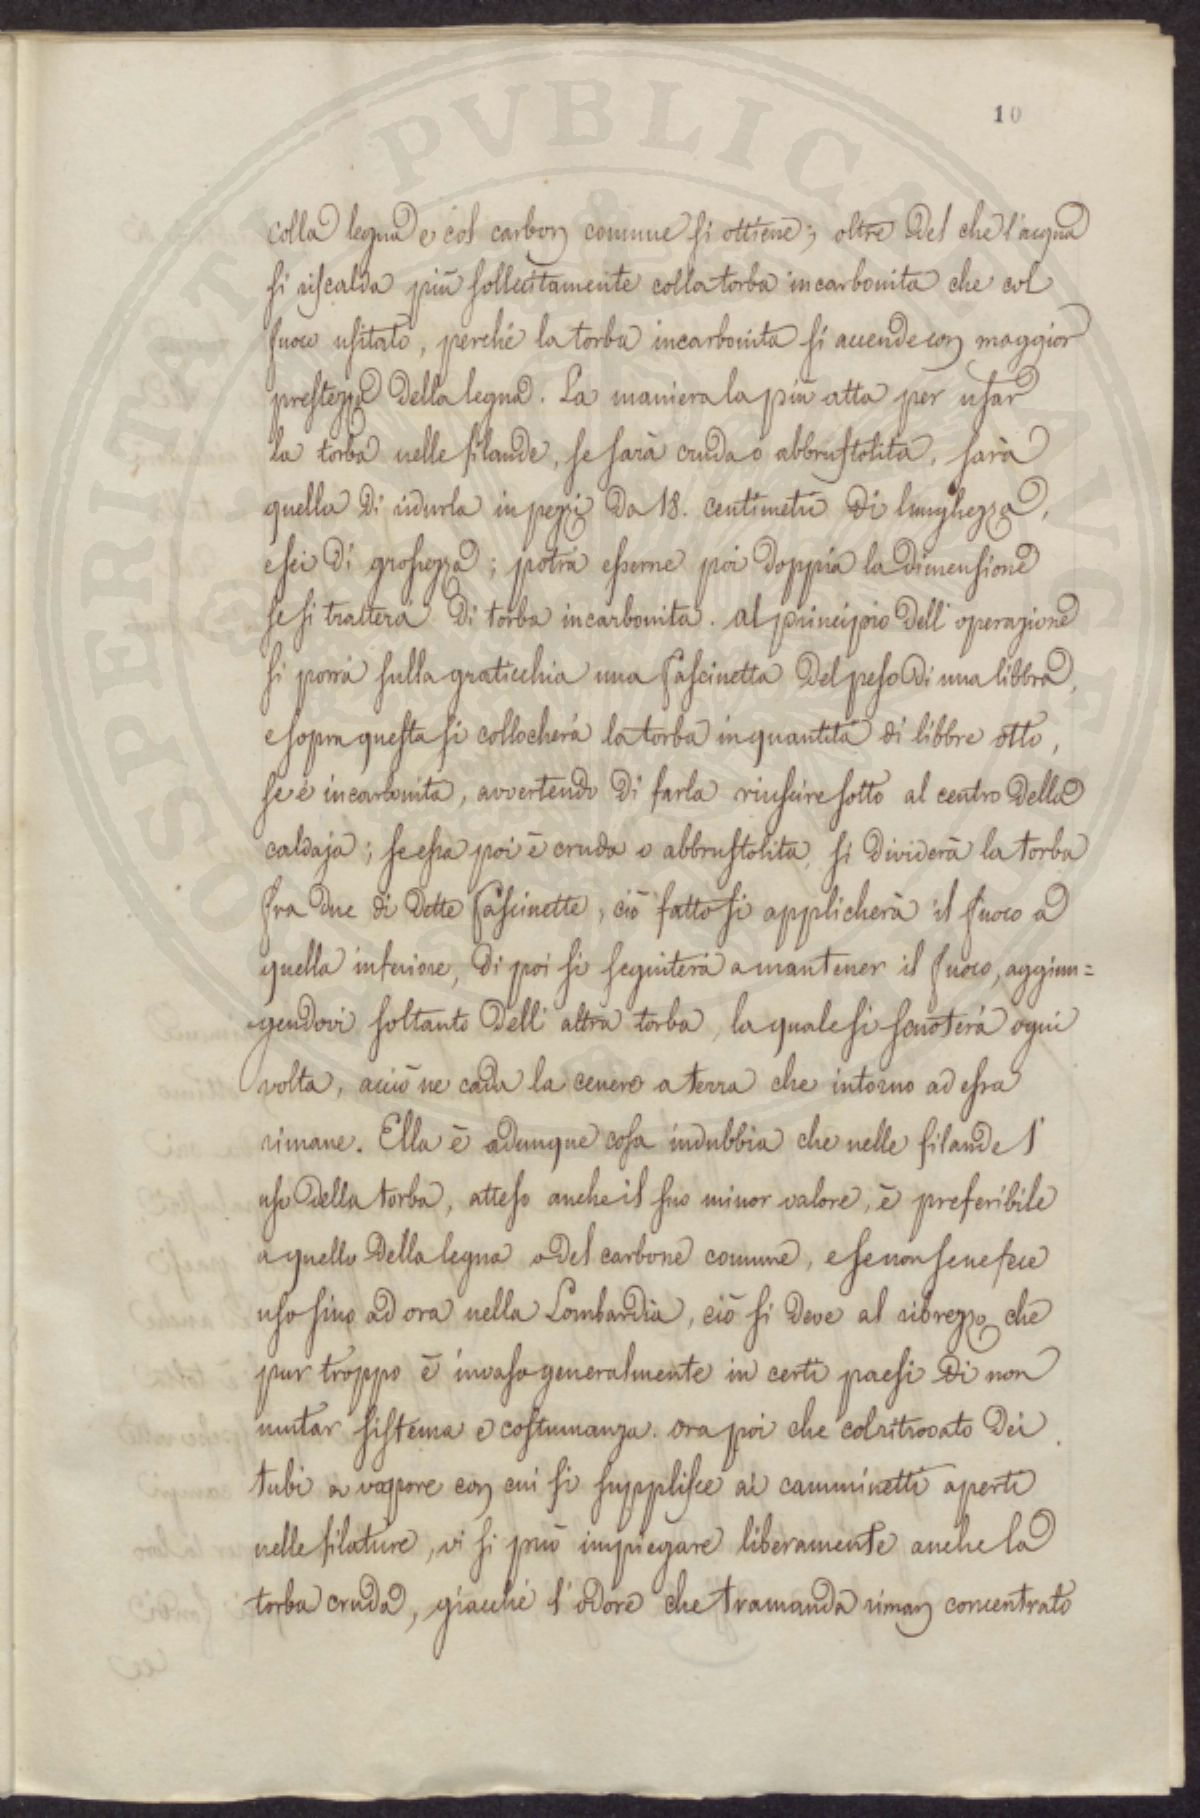 PVBLICAE
SPERITATI
AVGENDAE
10
colla legna e col carbon comune si ottiene; oltre del che l'acqua
si riscalda più sollecitamente colla torba incarbonita che col
fuoco usitato, perché la torba incarbonita si accende con maggior
prestezza della legna. La maniera la più atta per usar
la torba nelle filande, se sarà cruda o abbrustolita, sarà
quella di ridurla in pezzi da 18. centimetri di lunghezza,
e sei di grossezza; potrà esserne poi doppia la dimensione
se si tratterà di torba incarbonita. Al principio dell'operazione
si porrà sulla graticchia una fascinetta del peso di una libbra,
e sopra questa si collocherà la torba in quantità di libbre otto,
se è incarbonita, avvertendo di farla riuscire sotto al centro della
caldaja; se essa poi è cruda o abbrustolita, si dividerà la torba
fra due di dette fascinette, ciò fatto si applicherà il fuoco a
quella inferiore, di poi si seguiterà a mantener il fuoco, aggiun=
gendovi soltanto dell'altra torba, la quale si scuoterà ogni
volta, acciò ne cada la cenere a terra che intorno ad essa
rimane. Ella è adunque cosa indubbia che nelle filande l'
uso della torba, atteso anche il suo minor valore, è preferibile
a quello della legna o del carbone comune, e se non se ne fece
uso sino ad ora nella Lombardia, ciò si deve al ribrezzo che
pur troppo è invaso generalmente in certi paesi di non
mutar sistema e costumanza. Ora poi che col ritrovato dei
tubi a vapore con cui si supplisce ai camminetti aperti
nelle filature, vi si può impiegare liberamente anche la
torba cruda, giacché l'odore che tramanda riman concentrato